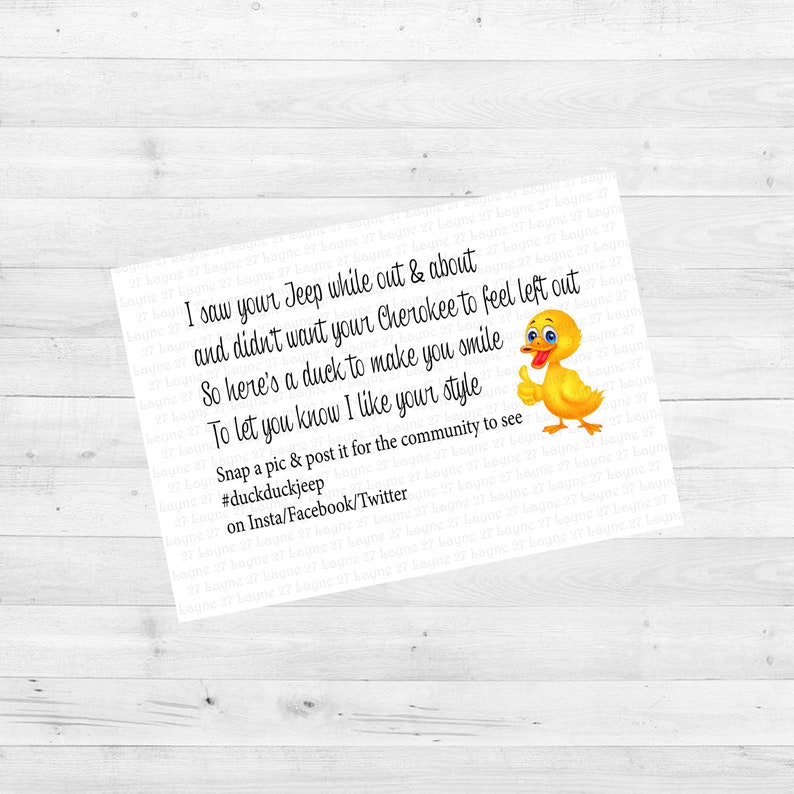 I saw your Jeep while out & about
and didn't want your Cherokee to feel left out
So here's a duck to make you smile
To let you know I like your style
Snap a pic & post it for the community to see
#duckduckjeep
on Insta/Facebook/Twitter
Layne 27